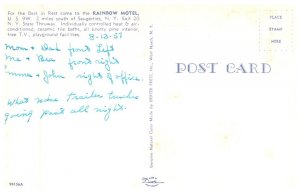 For the Best in Rest come to the RAINBOW MOTEL,
U. S. 9W. 2 miles south of Saugerties, N. Y. Exit 20
N. Y. State Thruway. Individually controlled heat & air-
conditioning, ceramic tile baths, all knotty pine interior,
free T.V., playground facilities.
8-12-57
Mom & Dad front left
Me & Bea front right
mme & John right of office.
What noise trailer trucks
going past all night.
PLACE
STAMP
HERE
POST CARD
99156A